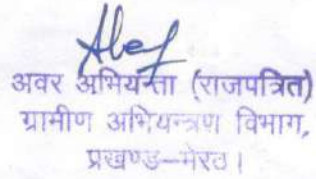 अवर अभियन्ता (राजपत्रित)
ग्रामीण अभियन्त्रण विभाग,
प्रखण्ड–मेरठ।